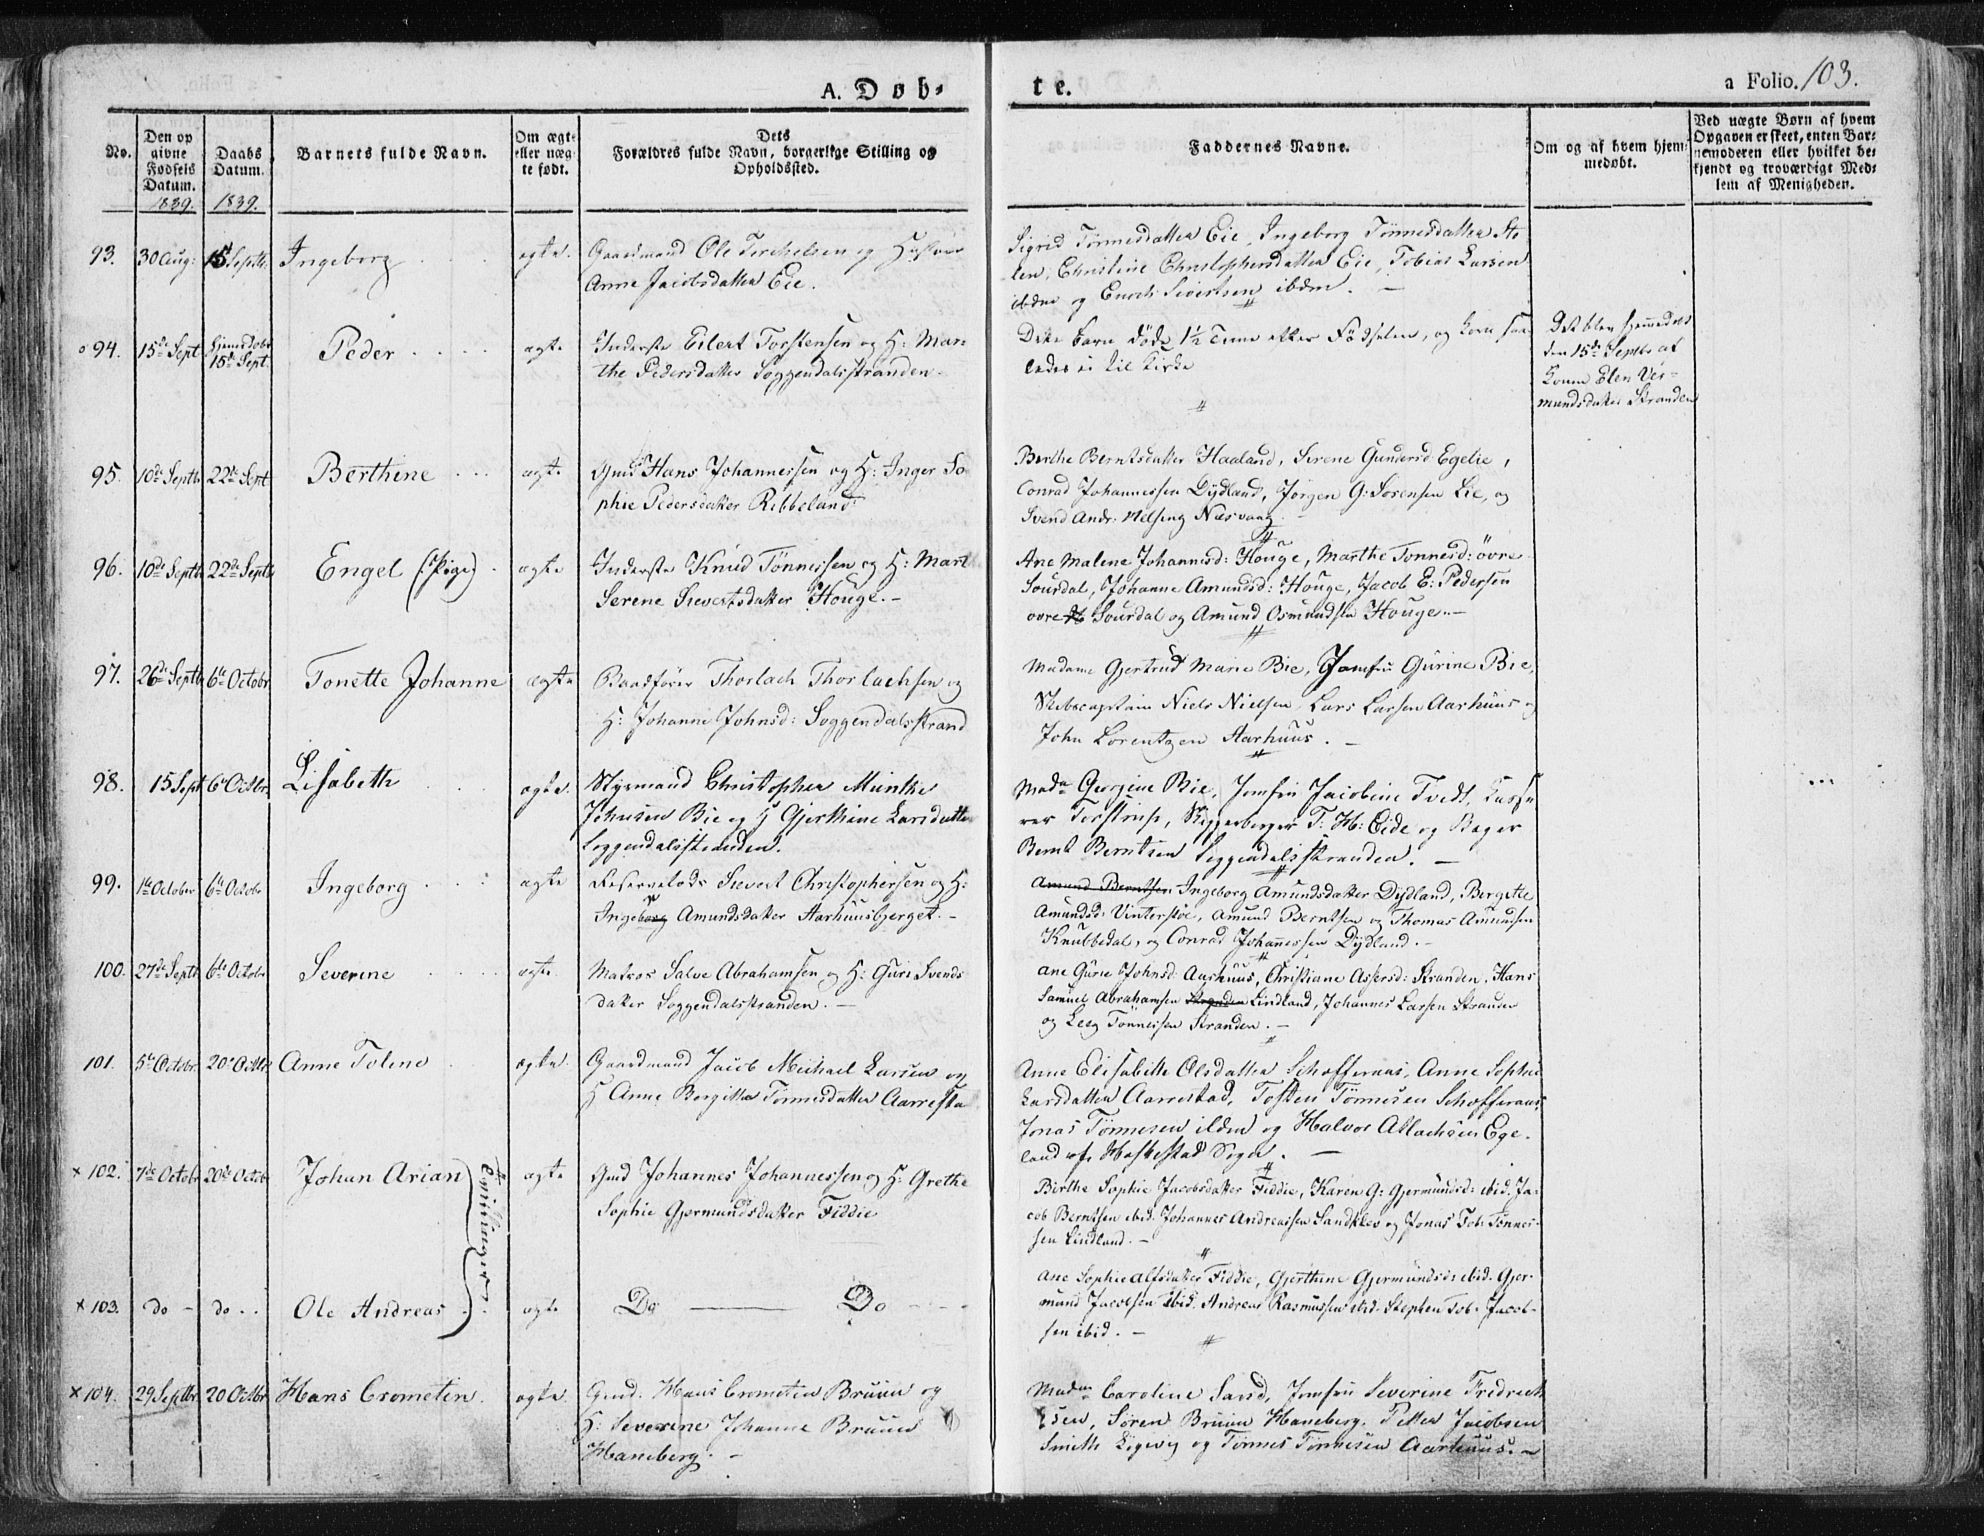 A. Døb-
te.
a Folio. 103.
No.
Den op
givne
Fødsels
Datum.
1839.
Daabs
Datum.
1839.
Barnets fulde Navn.
Om ægte
eller uæg-
te født.
Dets
Forældres fulde Navn, borgerlige Stilling og
Opholdssted.
Faddernes Navne.
Om og af hvem hjem-
medøbt.
Ved uægte Børn af hvem
Opgaven er skeet, enten Bar-
nemoderen eller hvilket be-
kjendt og troværdigt Med-
lem af Menigheden.
93. 30 Aug: 15 Septb. Ingeborg ægte.
Gaardmand Ole Terchelsen og Hustrue
Anne Jacobsdatter Eie.
Sigrid Tønnesdatter Eie, Ingeborg Tønnesdatter Sto
len, Christine Christophersdatter Eie, Tobias Larsen
ibdm og Enoch Sivertsen ibdm. —
94. 15de Sept Hjemedøbt
15de Sept. Peder ægte
Inderste Eilert Torstensen og H: Mar
the Pedersdatter Soggendalsstranden.
Dette Barn døde 1½ Time efter Fødselen, og kom saa
ledes ei til Kirke
Det blev hjemmedøbt
den 15de Septbr af
Konen Elen Ver-
mundsdatter Stranden
95. 10de Septb 22de Sept Berthine ægte
Gmd Hans Johannessen og H: Inger So
phie Pedersdatter Ribbeland
Berthe Berntsdatter Haaland, Serene Gundersd Egelie,
Conrad Johannessen Dydland, Jørgen G: Sørensen Lie, og
Svend Andr: Nelsing Næsvaag.
96. 10de Septb 22de Septb Engel (: Pige :) ægte
Inderste Knud Tønnessen og H: Mart
Serene Sivertsdatter Houge. —
Ane Malene Johannesd: Houge, Marthe Tønnesd: övre
Sourdal, Johanne Amundsd: Houge, Jacob E: Pedersen
övre Sourdal og Amund Osmundsen Houge. —
97. 26de Septb 6te Octobr Tonette Johanne ægte
Baadfører Thorlach Thorlachsen og
H: Johanne Johnsd: Soggendalsstrand
Madame Gjertrud Marie Bie, Jomfru Gurine Bie,
Skibscaptain Niels Nielsen, Lars Larsen Aarhuus og
John Lorentzen Aarhuus. —
98. 15 Sept 6te Octbr. Lisabeth ægte.
Styrmand Christopher Minthe
Johnsen Bie og H Gjerthine Larsdatter
Soggendalsstranden.
Made Georgine Bie, Jomfru Jacobine Tvedt, Kasse
rer Torstrup, Skipperborger T: H: Eide og Bager
Bernt Berntsen Soggendalsstranden. —
99. 1te October 6te Octobr Ingeborg ægte
Reservelods Sivert Christophersen og H:
Ingeborg Amundsdatter Aarhuusberget. —
Amund Berntsen Ingeborg Amundsdatter Dydland, Bergitte
Amundsd: Vinterstøe, Amund Berntsen og Thomas Amundsen
Knubbedal, og Conrad Johannessen Dydland. —
100. 27de Septb 6te Octobr Severine ægte
Matros Salve Abrahamsen og H: Guri Svends
datter Soggendalsstranden. —
Ane Gurie Johnsd: Aarhuus, Christiane Assersd: Stranden, Hans
Samuel Abrahamsen Stranden Lindland, Johannes Larsen Stranden
og Tönnessen Stranden. —
101. 5te Octobr. 20de Octbr Anne Toline ægte.
Gaardmand Jacob Michael Larsen og
H Anne Bergitte Tönnesdatter Aarresta
Anne Elisabeth Olsdatter Schofteraas, Anne Sophie
Larsdatter Aarrestad, Tosten Tönnesen Schofteraas,
Jonas Tönnesen ibdm og Halvor Atlachsen Ege-
land af Heskestad Sogn. —
× 102. 7de Octobr 20de Octobr Johan Arian ægte
Gmd Johannes Johannessen og H: Grethe
Sophie Gjermundsdatter Fiddie
Birthe Sophie Jacobsdatter Fiddie, Karen G: Gjermundsd: ibid. Ja-
cob Berntsen ibid. Johannes Andreassen Sandklev og Jonas Tob: Tönnes-
sen Lindland. —
Tvillinger
× 103. do — do . . Ole Andreas ægte
Do — Do
Ane Sophie Alfsdatter Fiddie, Gjerthine Gjermundsd: ibid. Gjer-
mund Jacobsen ibid. Andreas Rasmussen ibid. Stephen Tob: Jacob-
sen ibid. —
× 104. 29 Septbr 20 Octbr Hans Crometin ægte
Gmd. Hans Crometin Bruun og
H: Severine Johanne Bruun
Haneberg. —
Madam Caroline Sand, Jomfru Severine Fredrech
sen, Søren Bruun Haneberg. Petter Jacobsen
Smith og Tønnes Tønnesen Aarhuus. —